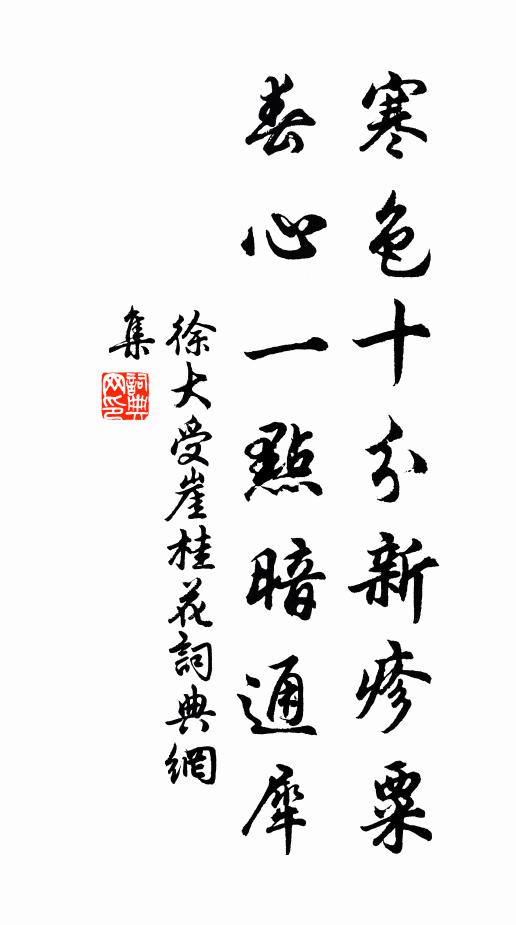 寒色十分新疹粟
春心一點暗通犀
徐大受崖桂花詞典網
集
詞典网印